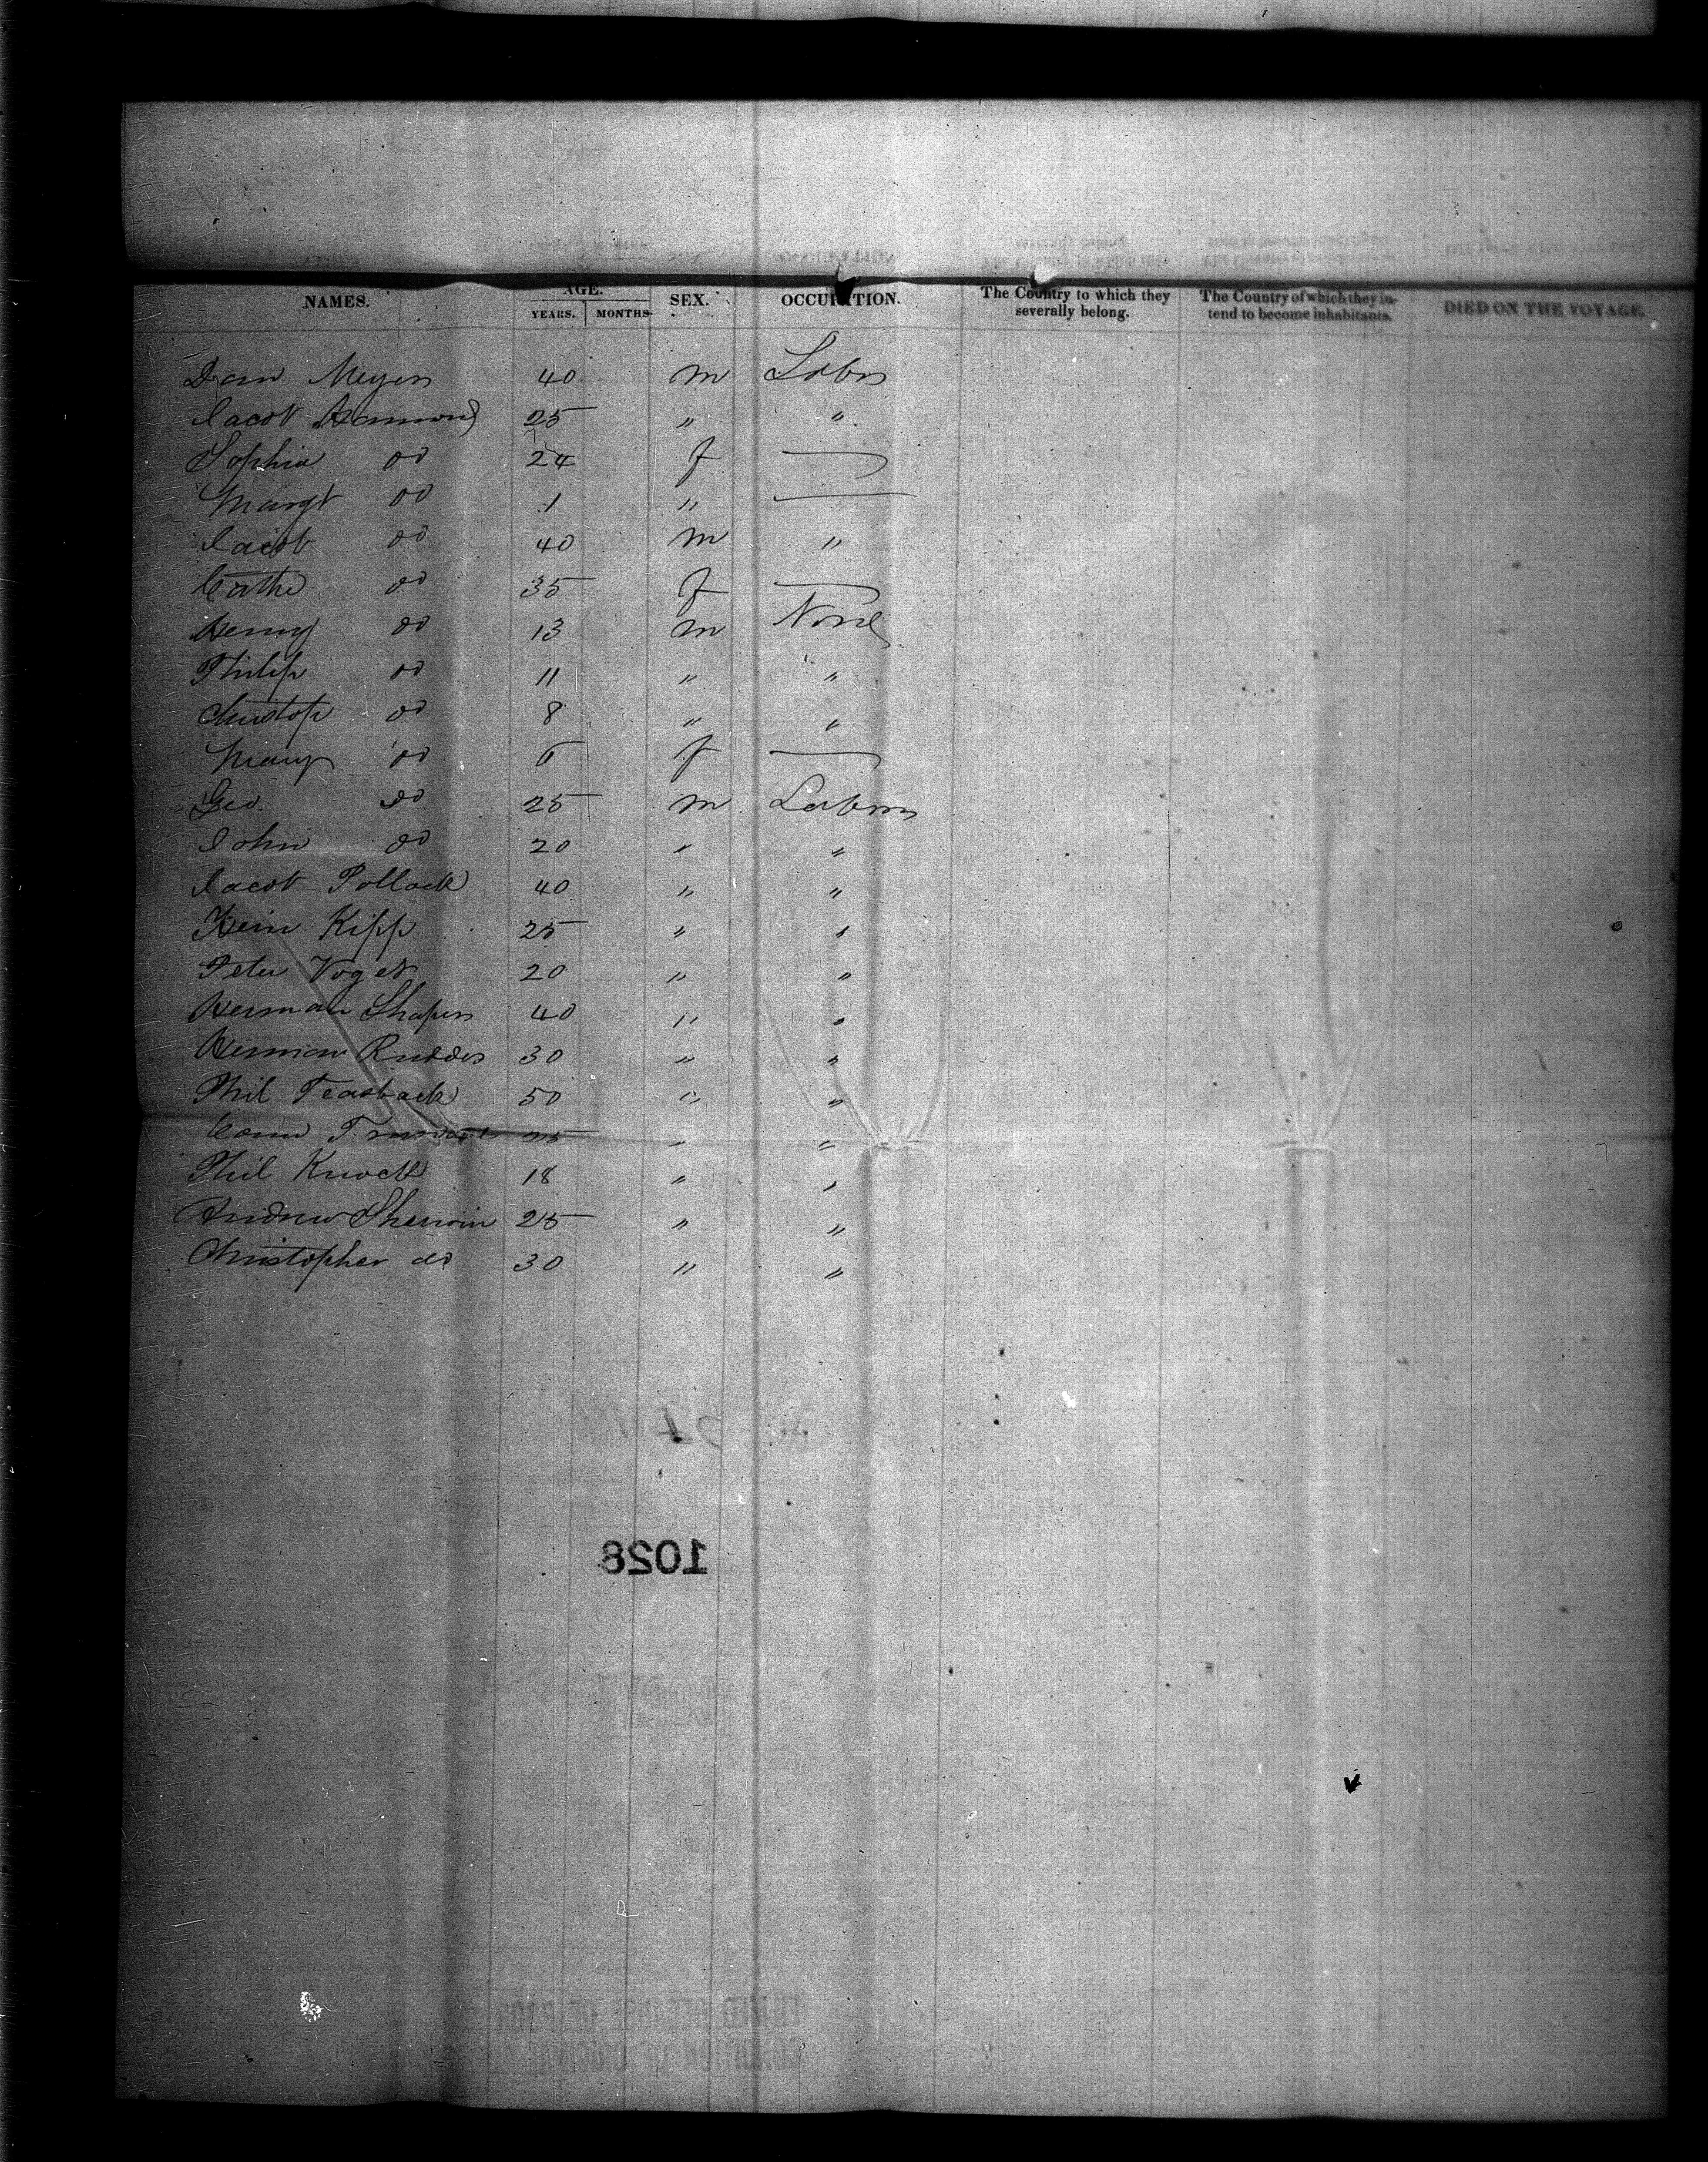 NAMES. AGE. SEX. OCCUPATION. The Country to which they severally belong. The Country of which they intend to become inhabitants. DIED ON THE VOYAGE.
YEARS. MONTHS
Dan Meyers 40 m Labor
Jacob Hammond 25 " "
Sophia do 24 f —
Margt do 1 " —
Jacob do 40 m "
Cathe do 35 f —
Henry do 13 m None
Philip do 11 " "
Christop do 8 " "
Mary do 6 f —
Geo. do 25 m Labour
John do 20 " "
Jacob Pollock 40 " "
Hein Kipp 25 " "
Peter Voget 20 " "
Herman Shapers 40 " "
Herman Rudder 30 " "
Phil 50 " "
" "
Phil Knock 18 " "
Andrew Sherwin 25 " "
Christopher do 30 " "
1028
FILMED BECAUSE OF POOR
CONDITION OF ORIGINAL